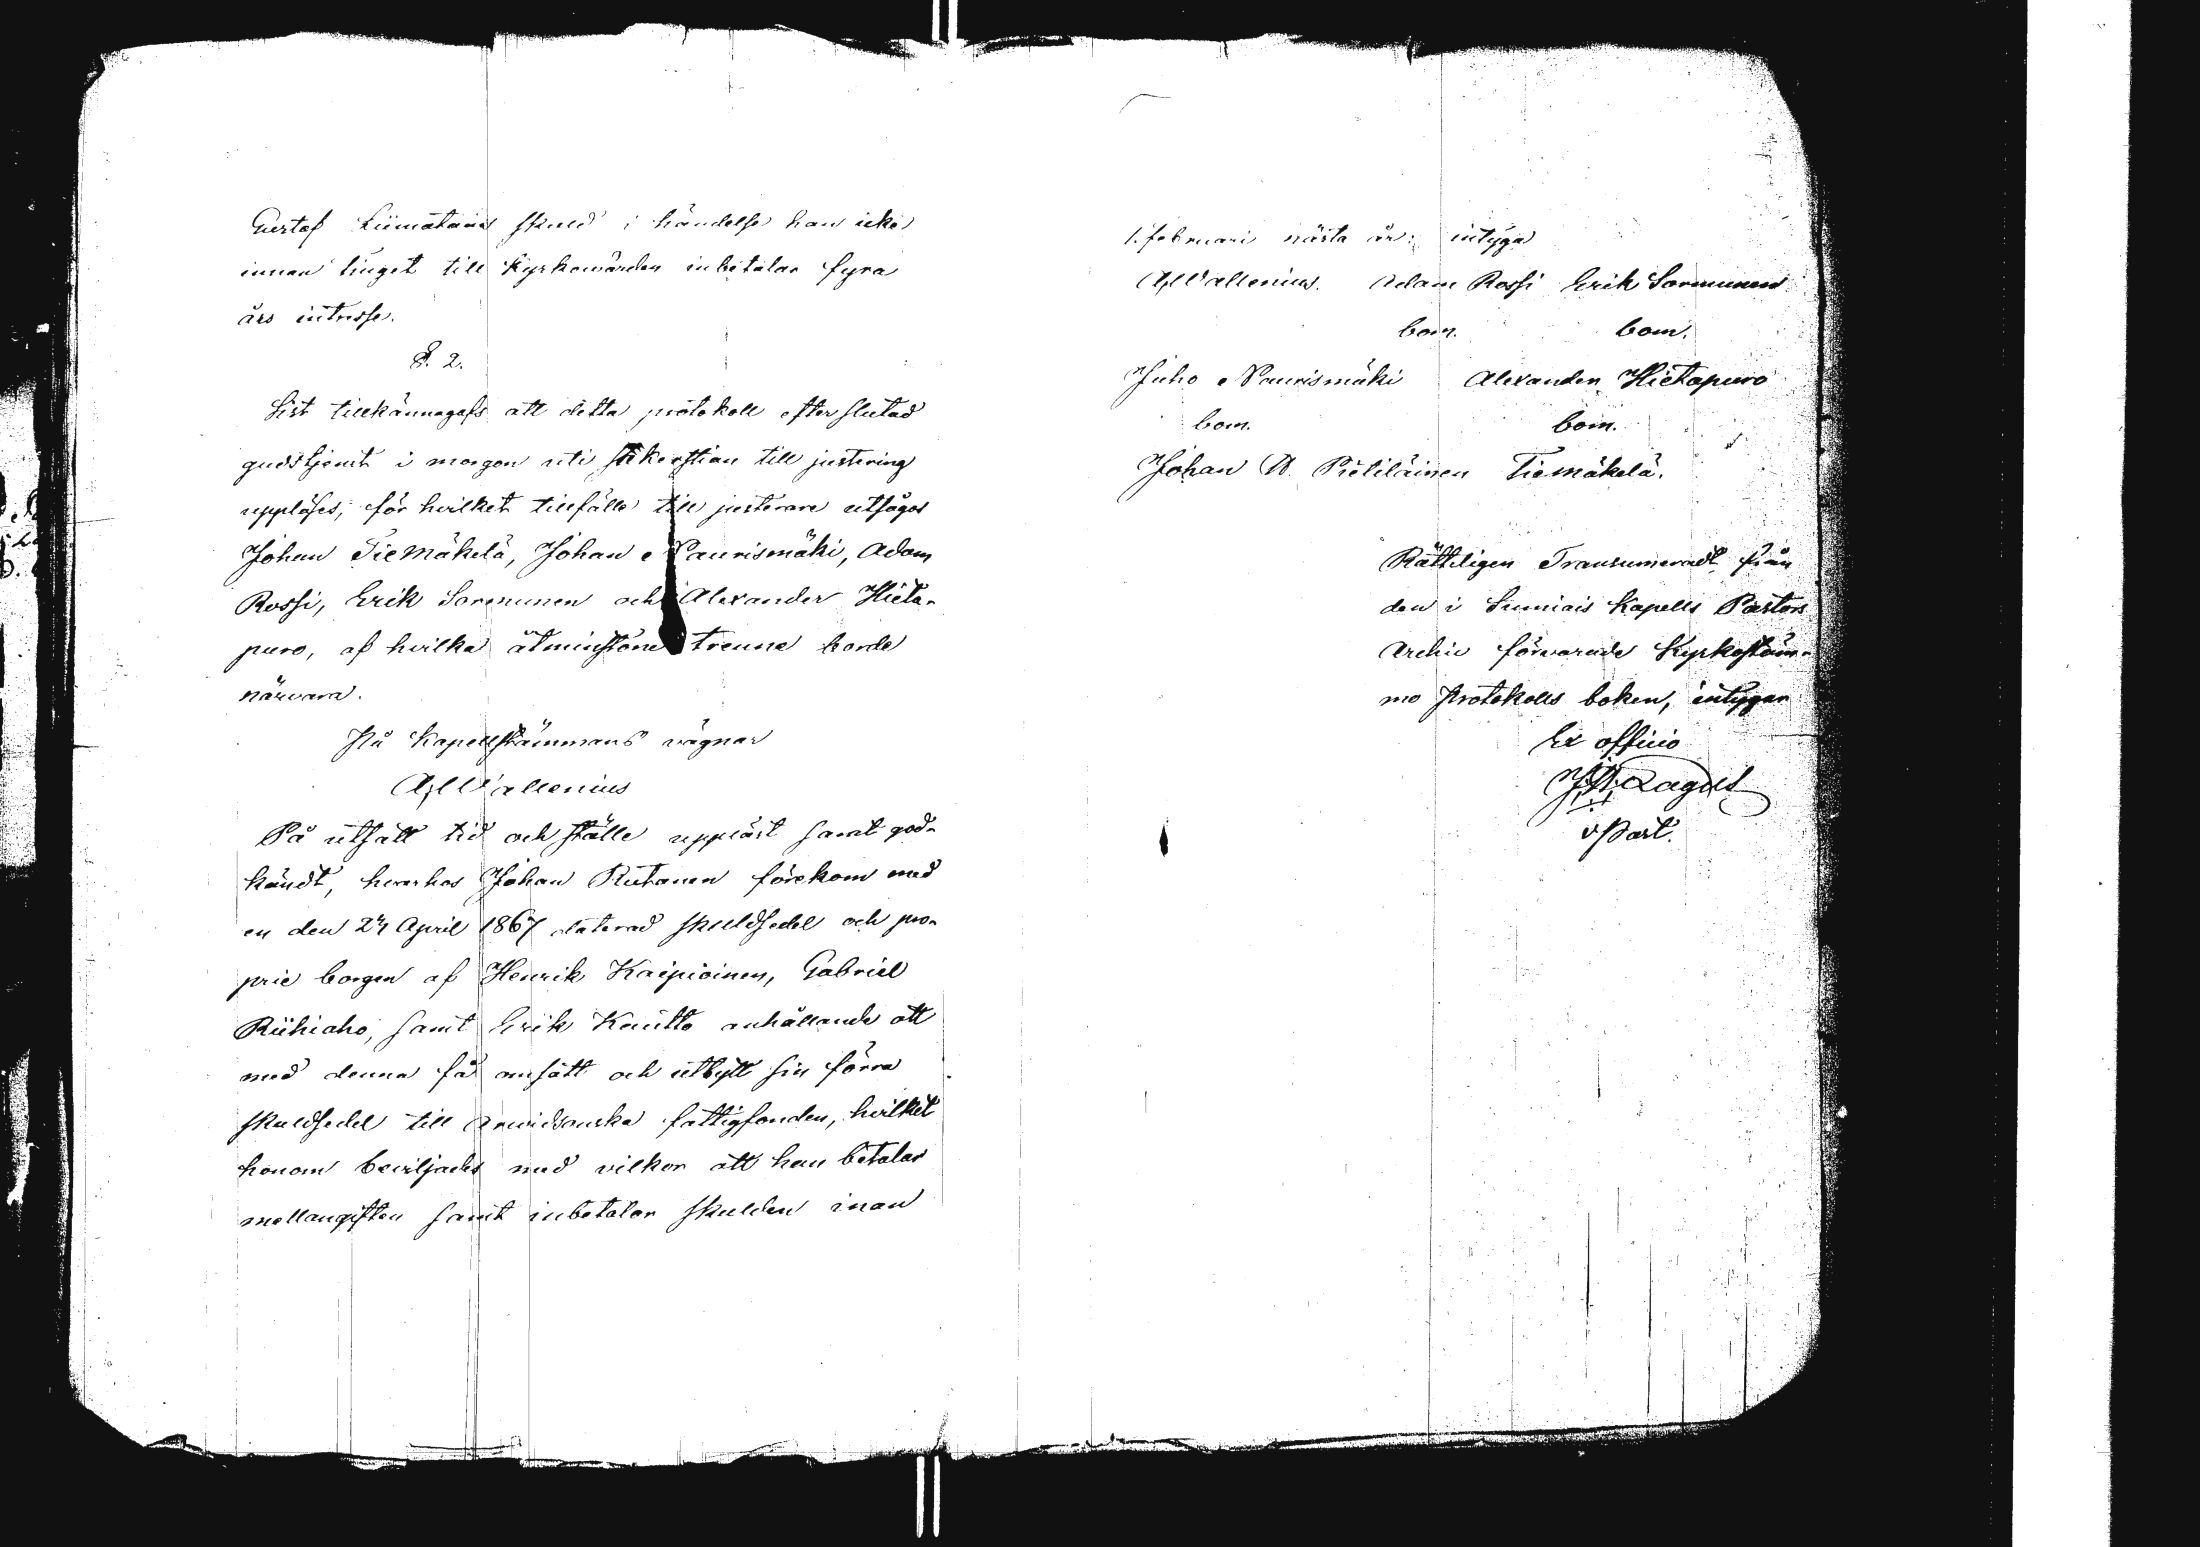 Gustaf Liimatains skuld i händelse han icke
innan tinget till Kyrkowärden inbetalar fyra
års intresse.
§. 2.
Sist tillkännagafs att detta protokoll efter slutad
gudstjenst i morgon uti sakerstian till justering
uppläses, för hvilket tillfälle till justerare utsågos
Johan Tiemäkelä, Johan Naurismäki, Adam
Rossi, Erik Sormunen och Alexander Hieta-
puro, af hvilka åtminstone trenne borde
närvara.
På Kapellstämmans vägnar
A. Wallenius
På utsatt tid och ställe uppläst samt god-
kändt, hvarhos Johan Rutanen förekom med
en den 24 April 1867 daterad skuldsedel och pro-
prie borgen af Henrik Kaipiainen, Gabriel
Riihiaho, samt Erik Kautto anhållande att
med denna få omsätt och utbytt sin förra
skuldsedel till Arwidsonska fattigfonden, hvilket
honom beviljades med vilkor att han betalar
mellangiften samt inbetalar skulden inan
1. februari nästa år; intyga
A. Wallenius. Adam Rossi Erik Sormunen
bom. bom.
Juho Naurismäki Alexander Hietapuro
bom. bom.
Johan A. Pietiläinen Tiemäkelä.
Rätteligen Transumeradt från
den i Sumiais Kapells Pastors
Archiv förvarade Kyrkostäm-
mo Protokolls boken, intygar
Ex officio
Lagus
v Past.